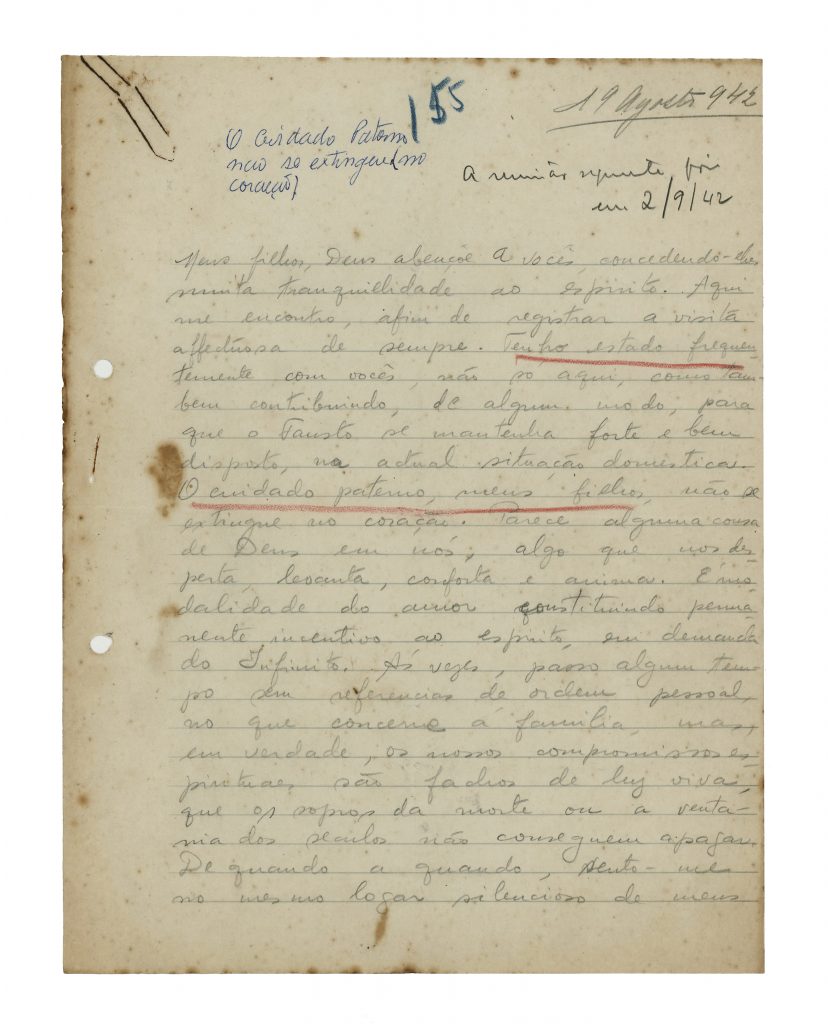 155
19 Agosto 942
O Cuidado Paterno
não se extingue (no
coração)
A reunião seguinte foi
em 2/9/42
Meus filhos, Deus abençõe a vocês, concedendo-lhes
muita tranquillidade ao espirito. Aqui
me encontro, afim de registrar a visita
affectuosa de sempre. Tenho estado frequen-
temente com vocês, não só aqui, como tam-
bem contribuindo, de algum modo, para
que o Fausto se mantenha forte e bem
disposto, na actual situação domestica.
O cuidado paterno, meus filhos, não se
extingue no coração. Parece alguma cousa
de Deus em nós; algo que nos des-
perta, levanta, conforta e anima. É mo-
dalidade do amor constituindo perma-
nente incentivo ao espirito, em demanda
do Infinito. Ás vezes, passo algum tem-
po sem referencias de ordem pessoal,
no que concerne á familia, mas,
em verdade, os nossos compromissos es-
pirituaes são fachos de luz viva,
que os sopros da morte ou a venta-
nia dos seculos não conseguem apagar.
De quando a quando, sento-me
no mesmo logar silencioso de meus